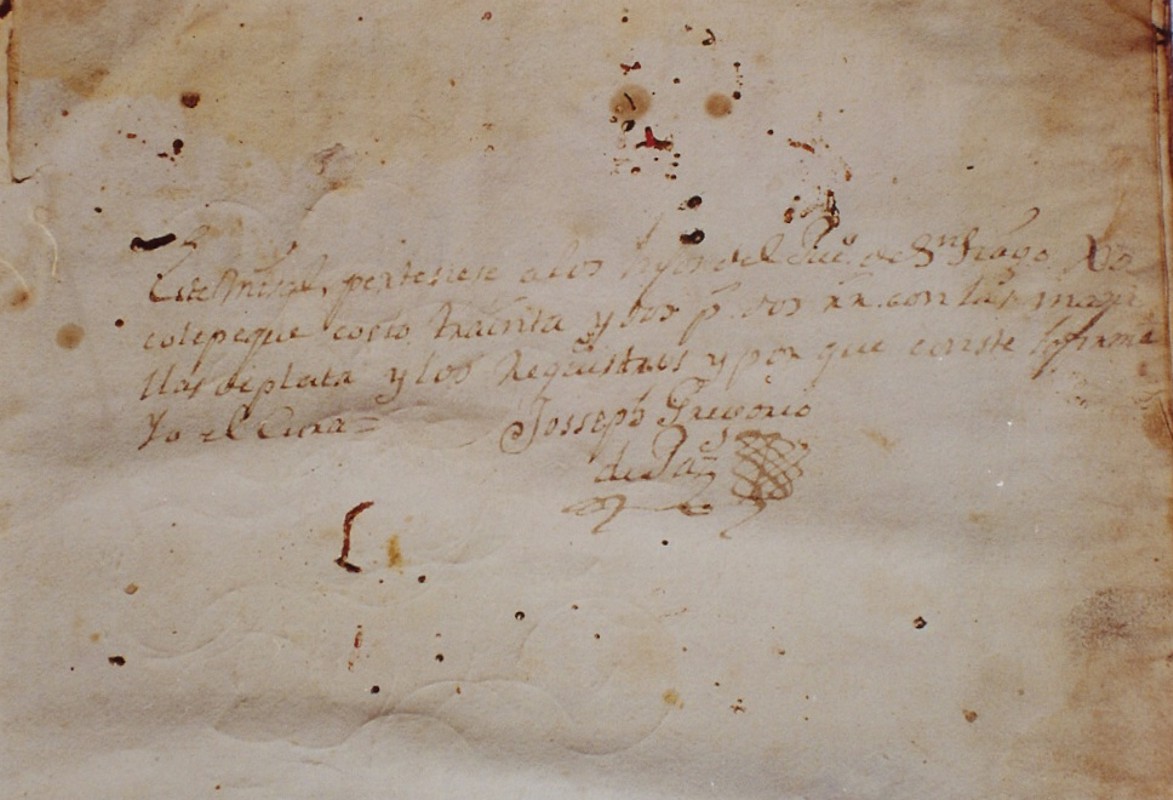 Este Misal, pertenese a los hijos del Pue.o de Sn Tiago No
colepeque costo trainta y dos p.s dos rr. con las mani
llas de plata y los Registros y por que conste lo firmé
Yo el Cura =
Josseph Gregorio
de Paz